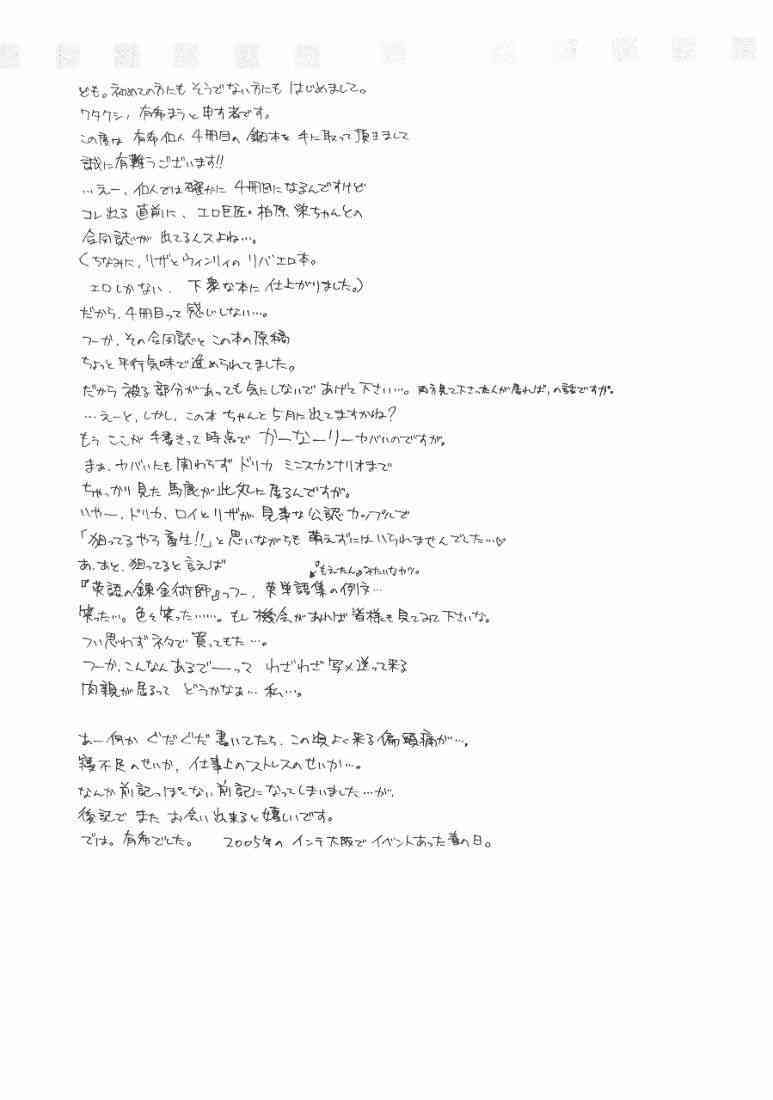 ども。初めての方にも そうでない方にも はじめまして。
ワタクシ、有希まうと申す者です。
この度は 有希個人 4冊目の 鋼本を 手に取って頂きまして
誠に有難うございます!!
…えー、個人では確かに 4冊目になるんですけど
コレ出る 直前に、エロ巨匠・柏原 栄ちゃんとの
合同誌が 出てるんスよね…。
(ちなみに、リザとウィンリィの リバエロ本。
エロしかない、下衆な本に 仕上がりました。)
だから、4冊目って 感じしない…。
つーか、その合同誌と この本の原稿
ちょっと平行気味で進められてました。
だから 被る部分があっても 気にしないで あげて下さい…。両方見て下さった人が居れば、の話ですが。
…えーと、しかし、この本 ちゃんと 5月に出てますかね?
もう ここが 手書きって 時点で かーなーりーヤバいのですが。
まぁ、ヤバいにも 関わらず ドリカ ミニスカシナリオまで
ちゃっかり見た 馬鹿が 此処に 居るんですが。
いやー、ドリカ、ロイとリザが 見事な公認 カップルで
「狙ってるやろ畜生!!」と 思いながらも 萌えずにはいられませんでした…♡
あ、あと、狙ってると言えば
『もえたん』みたいなヤツ。
『英語の錬金術師』っつー、英単語集の例文…
笑った…。色々笑った……。もし 機会があれば 皆様も見てみて下さいな。
つい思わず ネタで 買ってもた…。
つーか、こんなん あるでーーって わざわざ 写メ送って来る
肉親が居るって どうかなぁ… 私…。

あー何か ぐだぐだ 書いてたら、この頃よく来る偏頭痛が…。
寝不足のせいか、仕事上のストレスのせいか…。
なんか 前記っぽくない前記になってしまいました…が、
後記で また お会い出来ると 嬉しいです。
では。有希でした。 2005年の インテ大阪で イベントあった春の日。